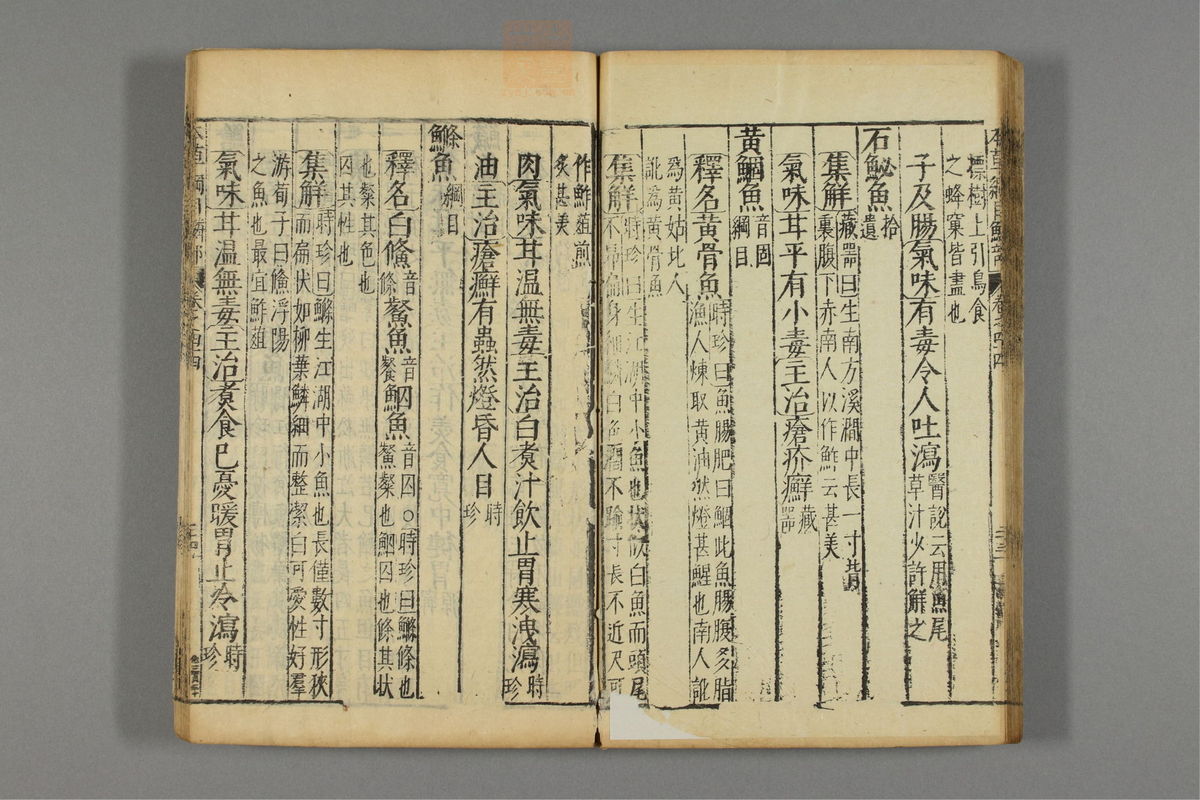 標樹上引鳥食
之蜂窠皆盡也
子及腸氣味有毒令人吐瀉醫說云用魚尾
草汁少許解之
石鮅魚拾遺
集解藏器曰生南方溪澗中長一寸背
裏腹下赤南人以作鮓云甚美
氣味甘平有小毒主治瘡疥癬藏器
黃鯝魚音固綱目
釋名黃骨魚時珍曰魚腸肥曰鯝此魚腸腹多脂
漁人煉取黃油然燈甚鯹也南人訛
為黃姑北人
訛為黃骨魚
集解時珍曰生江湖中小魚也狀似白魚而頭尾
不昂扁身細鱗白色闊不踰寸長不近尺可
作鮓葅煎
炙甚美
肉氣味甘温無毒主治白煑汁飲止胃寒洩瀉時珍
油主治瘡癬有蟲然燈昏人目時珍
鰷魚綱目
釋名白鯈音條䱗魚音餐鮂魚音囚○時珍曰鰷條也
䱗粲也鮂囚也條其狀
也粲其色也
囚其性也
集解時珍曰鰷生江湖中小魚也長僅數寸形狹
而扁狀如柳葉鱗細而整潔白可愛性好羣
游荀子曰鯈浮陽
之魚也最宜鮓葅
氣味甘温無毒主治煑食巳憂暖胃止冷瀉時珍